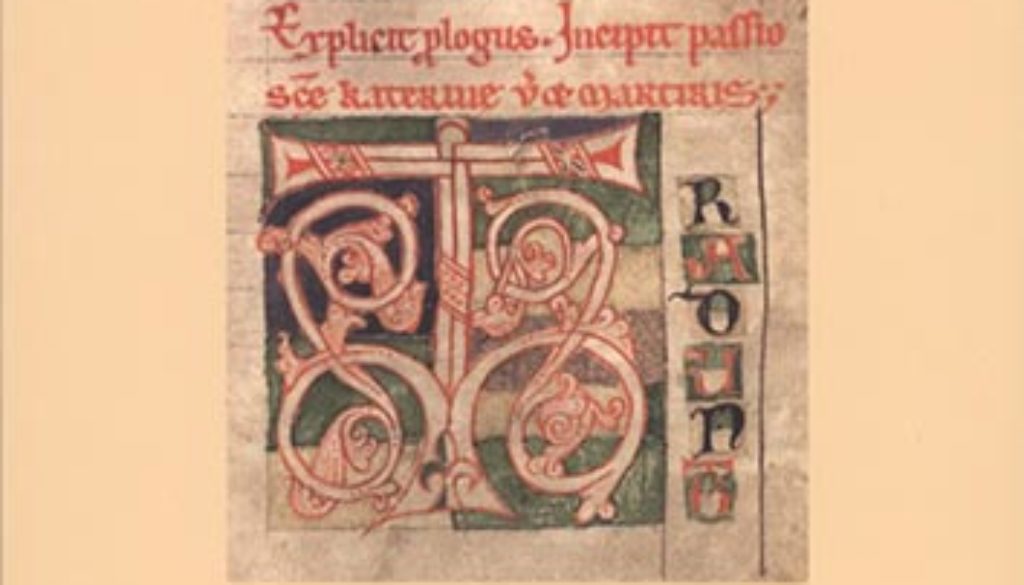 Explicit plogus. Incipit passio
sc̄e katerine v̄ ⁊ martiris
T
R
A
D
U
N
T